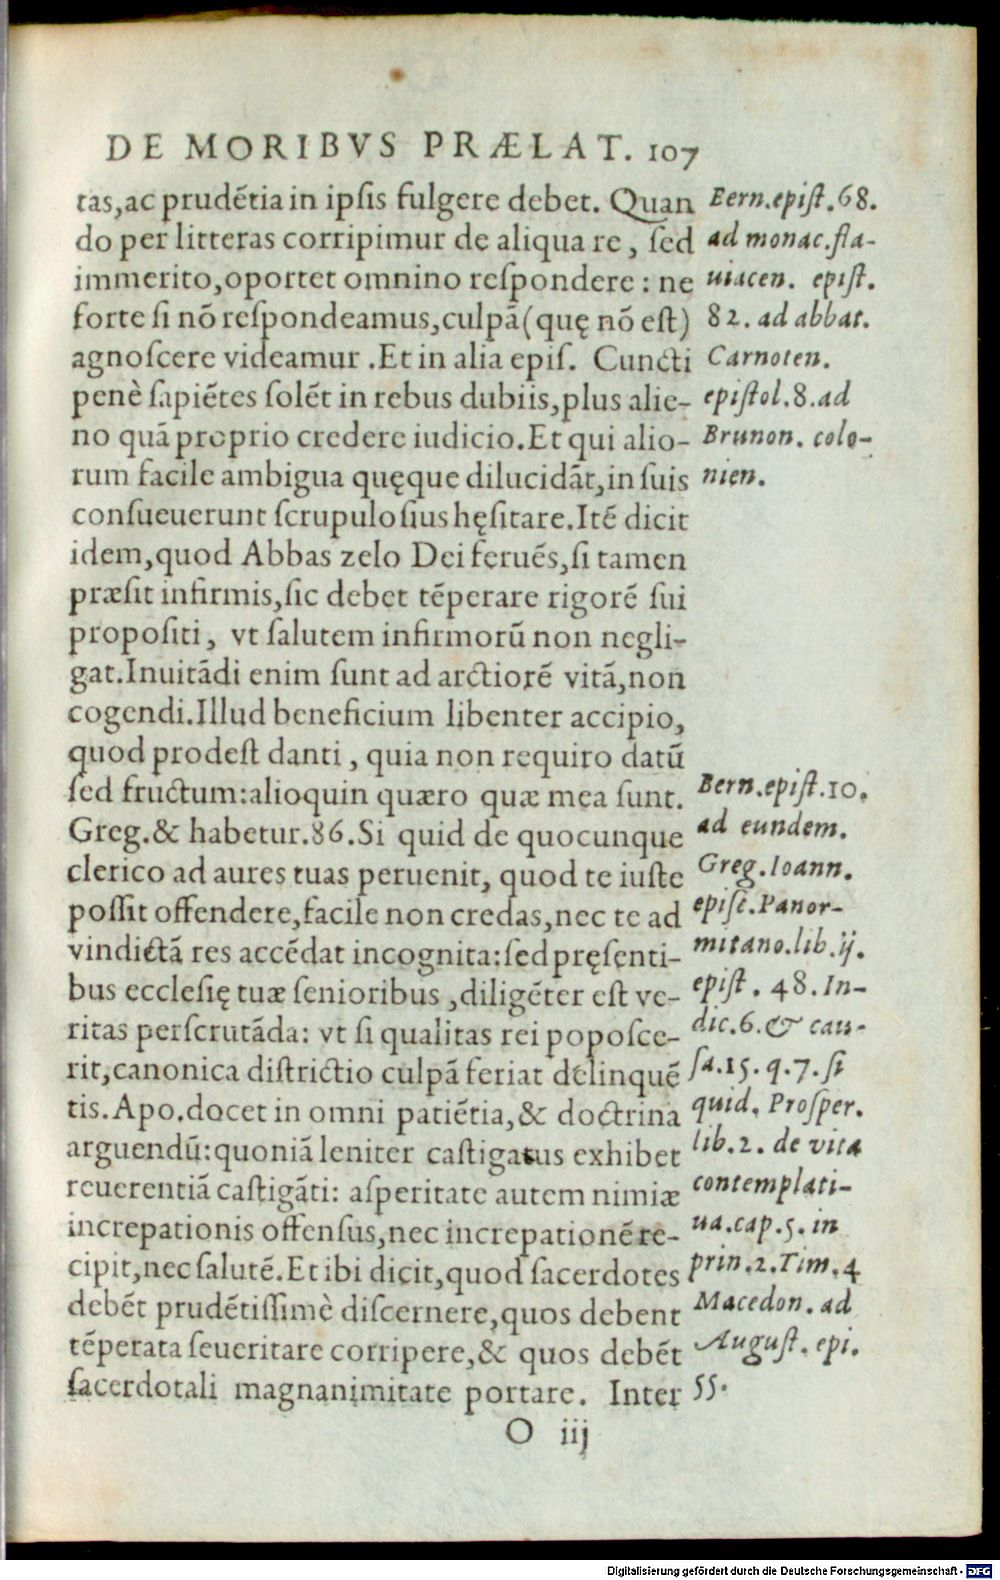 DE MORIBVS PRÆLAT. 107
tas,ac prudẽtia in ipſis fulgere debet. Quan
do per litteras corripimur de aliqua re, ſed
immerito,oportet omnino reſpondere: ne
forte ſi nõ reſpondeamus,culpã(quę nõ eſt)
agnoſcere videamur .Et in alia epiſ. Cuncti
penè ſapiẽtes ſolẽt in rebus dubiis,plus alie-
no quã proprio credere iudicio.Et qui alio-
rum facile ambigua quęque dilucidãt,in ſuis
conſueuerunt ſcrupuloſius hęſitare.Itẽ dicit
idem,quod Abbas zelo Dei feruẽs,ſi tamen
præſit infirmis,ſic debet tẽperare rigorẽ ſui
propoſiti, vt ſalutem infirmorũ non negli-
gat.Inuitãdi enim ſunt ad arctiorẽ vitã,non
cogendi.Illud beneficium libenter accipio,
quod prodeſt danti, quia non requiro datũ
ſed fructum:alioquin quæro quæ mea ſunt.
Greg.& habetur.86.Si quid de quocunque
clerico ad aures tuas peruenit, quod te iuſte
poſſit offendere,facile non credas,nec te ad
vindictã res accẽdat incognita:ſed pręſenti-
bus eccleſię tuæ ſenioribus,diligẽter eſt ve-
ritas perſcrutãda: vt ſi qualitas rei popoſce-
rit,canonica diſtrictio culpã feriat delinquẽ
tis.Apo.docet in omni patiẽtia,& doctrina
arguendũ:quoniã leniter caſtigatus exhibet
reuerentiã caſtigãti: aſperitate autem nimiæ
increpationis offenſus,nec increpationẽ re-
cipit,nec ſalutẽ.Et ibi dicit,quod ſacerdotes
debẽt prudẽtiſſimè diſcernere,quos debent
tẽperata ſeueritate corripere,& quos debẽt
ſacerdotali magnanimitate portare. Inter
O iij
Bern.epiſt.68.
ad monac.fla-
uiacen. epiſt.
82. ad abbat.
Carnoten.
epiſtol.8.ad
Brunon. colo-
nien.
Bern.epiſt.10.
ad eundem.
Greg.Ioann.
epiſc.Panor-
mitano.lib.ij.
epiſt. 48.In-
dic.6.& cau-
ſa.15.q.7.ſi
quid. Proſper.
lib.2. de vita
contemplati-
ua.cap.5. in
prin.2.Tim.4
Macedon. ad
Auguſt. epi.
55.
Digitalisierung gefördert durch die Deutsche Forschungsgemeinschaft - DFG